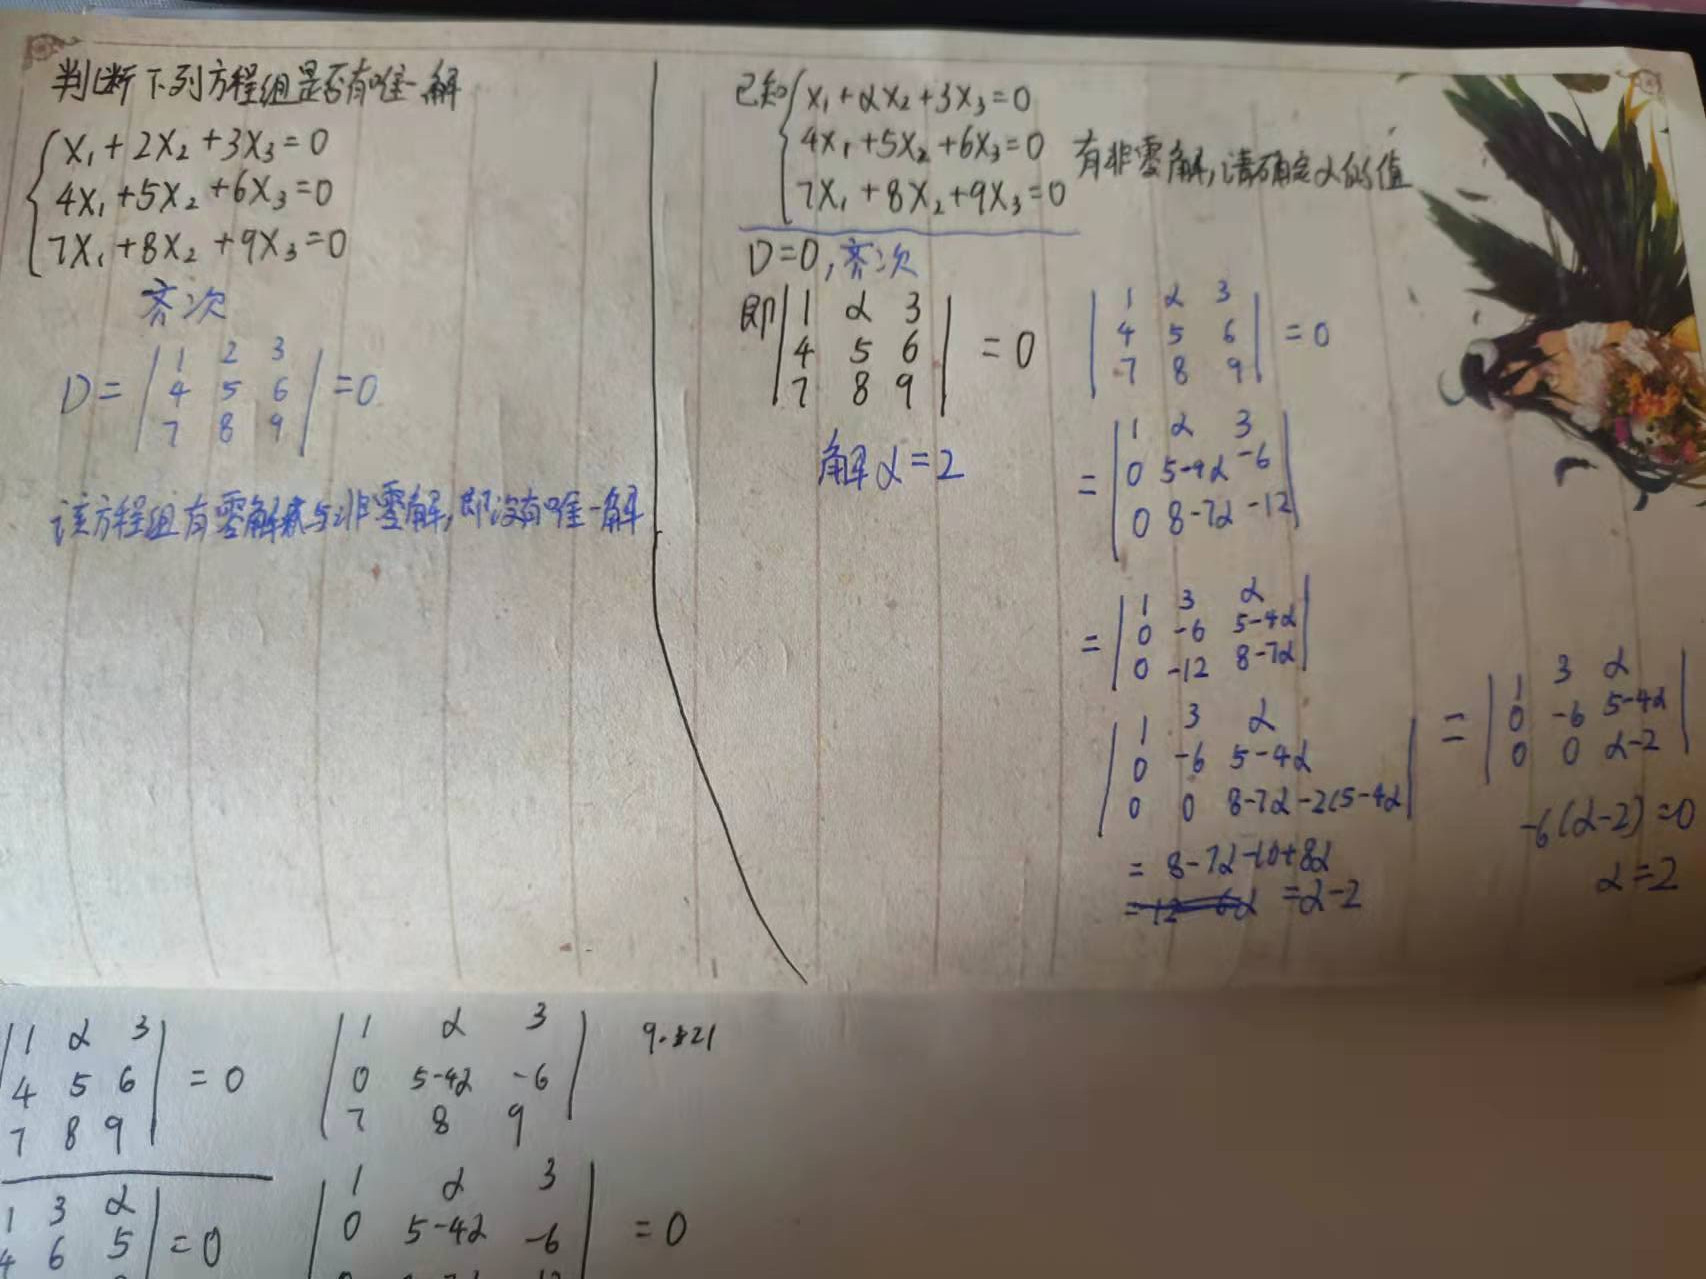 判断下列方程组是否有唯一解
x₁+2x₂+3x₃=0
4x₁+5x₂+6x₃=0
7x₁+8x₂+9x₃=0
齐次
D=
1 2 3
4 5 6
7 8 9
=0
该方程组有零解与非零解,即没有唯一解
已知
x₁+αx₂+3x₃=0
4x₁+5x₂+6x₃=0
7x₁+8x₂+9x₃=0
有非零解,请确定α的值
D=0,齐次
即
1 α 3
4 5 6
7 8 9
=0
解α=2
1 α 3
4 5 6
7 8 9
=0
=
1 α 3
0 5-4α -6
0 8-7α -12
=
1 3 α
0 -6 5-4α
0 -12 8-7α
1 3 α
0 -6 5-4α
0 0 8-7α-2(5-4α
= 8-7α-10+8α
=α-2
=
1 3 α
0 -6 5-4α
0 0 α-2
-6(α-2)=0
α=2
1 α 3
4 5 6
7 8 9
=0
1 α 3
0 5-4α -6
7 8 9
1 3 α
4 6 5
=0
1 α 3
0 5-4α -6
=0